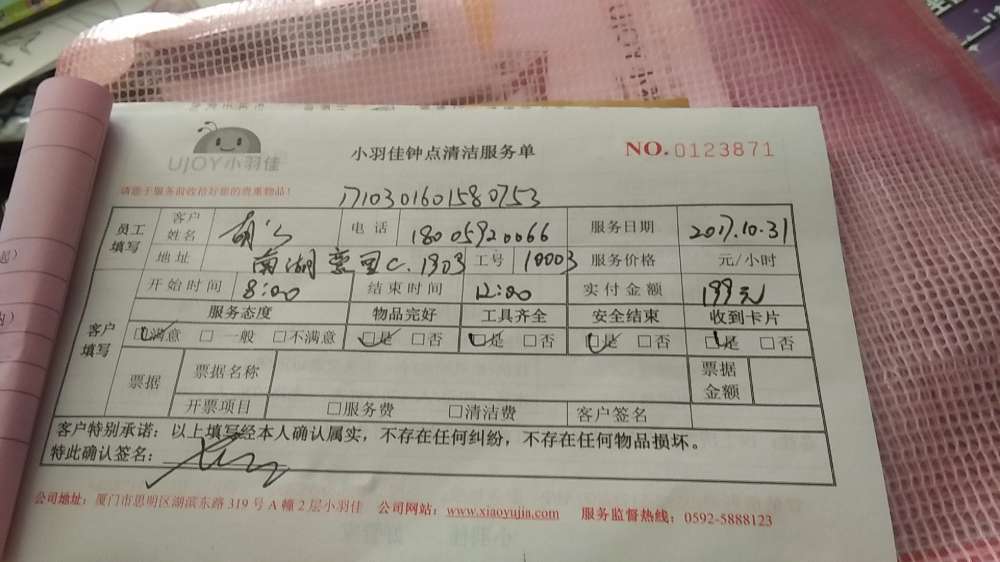 UJOY小羽佳
小羽佳钟点清洁服务单
NO.0123871
请您于服务前收拾好您的贵重物品！
1710301601580753
员工填写 客户姓名 电话 18005920066 服务日期 2017.10.31
地址 南湖 C.1903 工号 10003 服务价格 元/小时
开始时间 8:00 结束时间 12:00 实付金额 199元
客户填写 服务态度 物品完好 工具齐全 安全结束 收到卡片
☑满意 □一般 □不满意 ☑是 □否 ☑是 □否 ☑是 □否 ☑是 □否
票据 票据名称 票据金额
开票项目 □服务费 □清洁费 客户签名
客户特别承诺：以上填写经本人确认属实，不存在任何纠纷，不存在任何物品损坏。
特此确认签名：
公司地址：厦门市思明区湖滨东路319号A幢2层小羽佳 公司网站：www.xiaoyujia.com 服务监督热线：0592-5888123